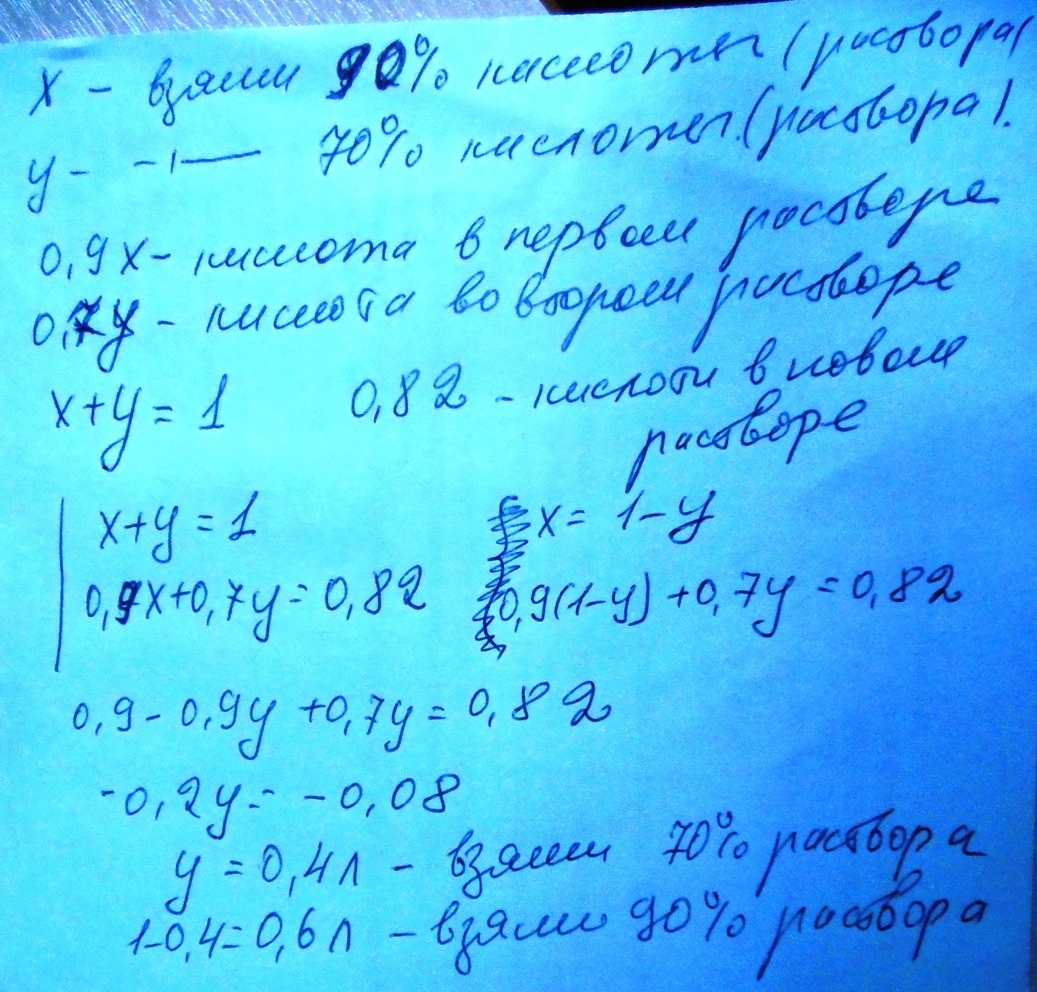 x – взяли 90% кислоты (раствора)
y – –ı— 70% кислоты (раствора).
0,9x – кислота в первом растворе
0,7y – кислота во втором растворе
x+y = 1 0,82 – кислоти в новом
растворе
x+y = 1 x = 1-y
0,9x+0,7y = 0,82 0,9(1-y)+0,7y = 0,82
0,9 - 0,9y + 0,7y = 0,82
-0,2y = -0,08
y = 0,4л – взяли 70% раствора
1-0,4=0,6л – взяли 90% раствора